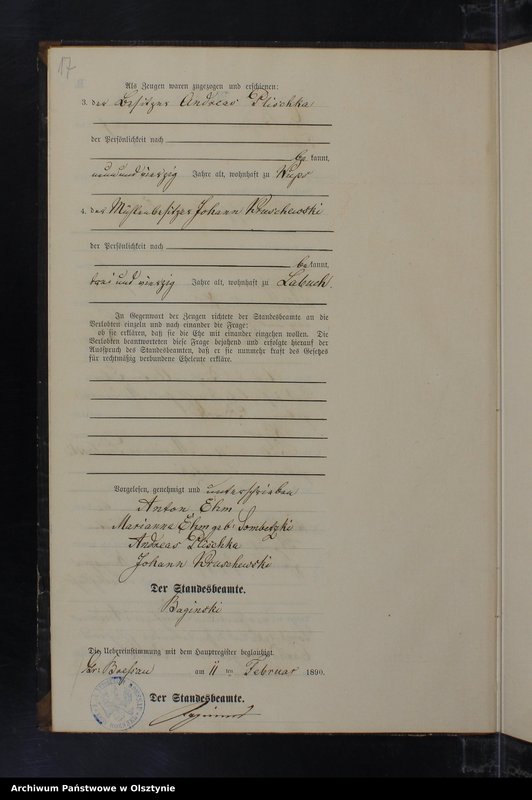 17
Als Zeugen waren zugezogen und erschienen:
3. der Besitzer Andreas Plischka
der Persönlichkeit nach
be kannt,
neun und vierzig Jahre alt, wohnhaft zu
4. der Mühlenbesitzer Johann Kruschewski
der Persönlichkeit nach
be kannt,
drei und vierzig Jahre alt, wohnhaft zu Labuch.
In Gegenwart der Zeugen richtete der Standesbeamte an die
Verlobten einzeln und nach einander die Frage:
ob sie erklären, daß sie die Ehe mit einander eingehen wollen. Die
Verlobten beantworteten diese Frage bejahend und erfolgte hierauf der
Ausspruch des Standesbeamten, daß er sie nunmehr kraft des Gesetzes
für rechtmäßig verbundene Eheleute erkläre.
Vorgelesen, genehmigt und unterschrieben
Anton Ehm
Marianna Ehm geb: Sombetzki
Andreas Plischka
Johann Kruschewski
Der Standesbeamte.
Baginski
Die Uebereinstimmung mit dem Hauptregister beglaubigt.
Gr: Bressau am 11 ten Februar 1890.
Der Standesbeamte.
Archiwum Państwowe w Olsztynie